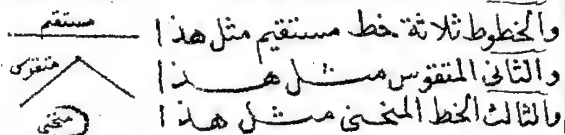 والخطوط ثلاثة خط مستقيم مثل هذا
مستقيم
والثاني المتقوس مثل هذا
متقوس
والثالث الخط المنحني مثل هذا
منحني